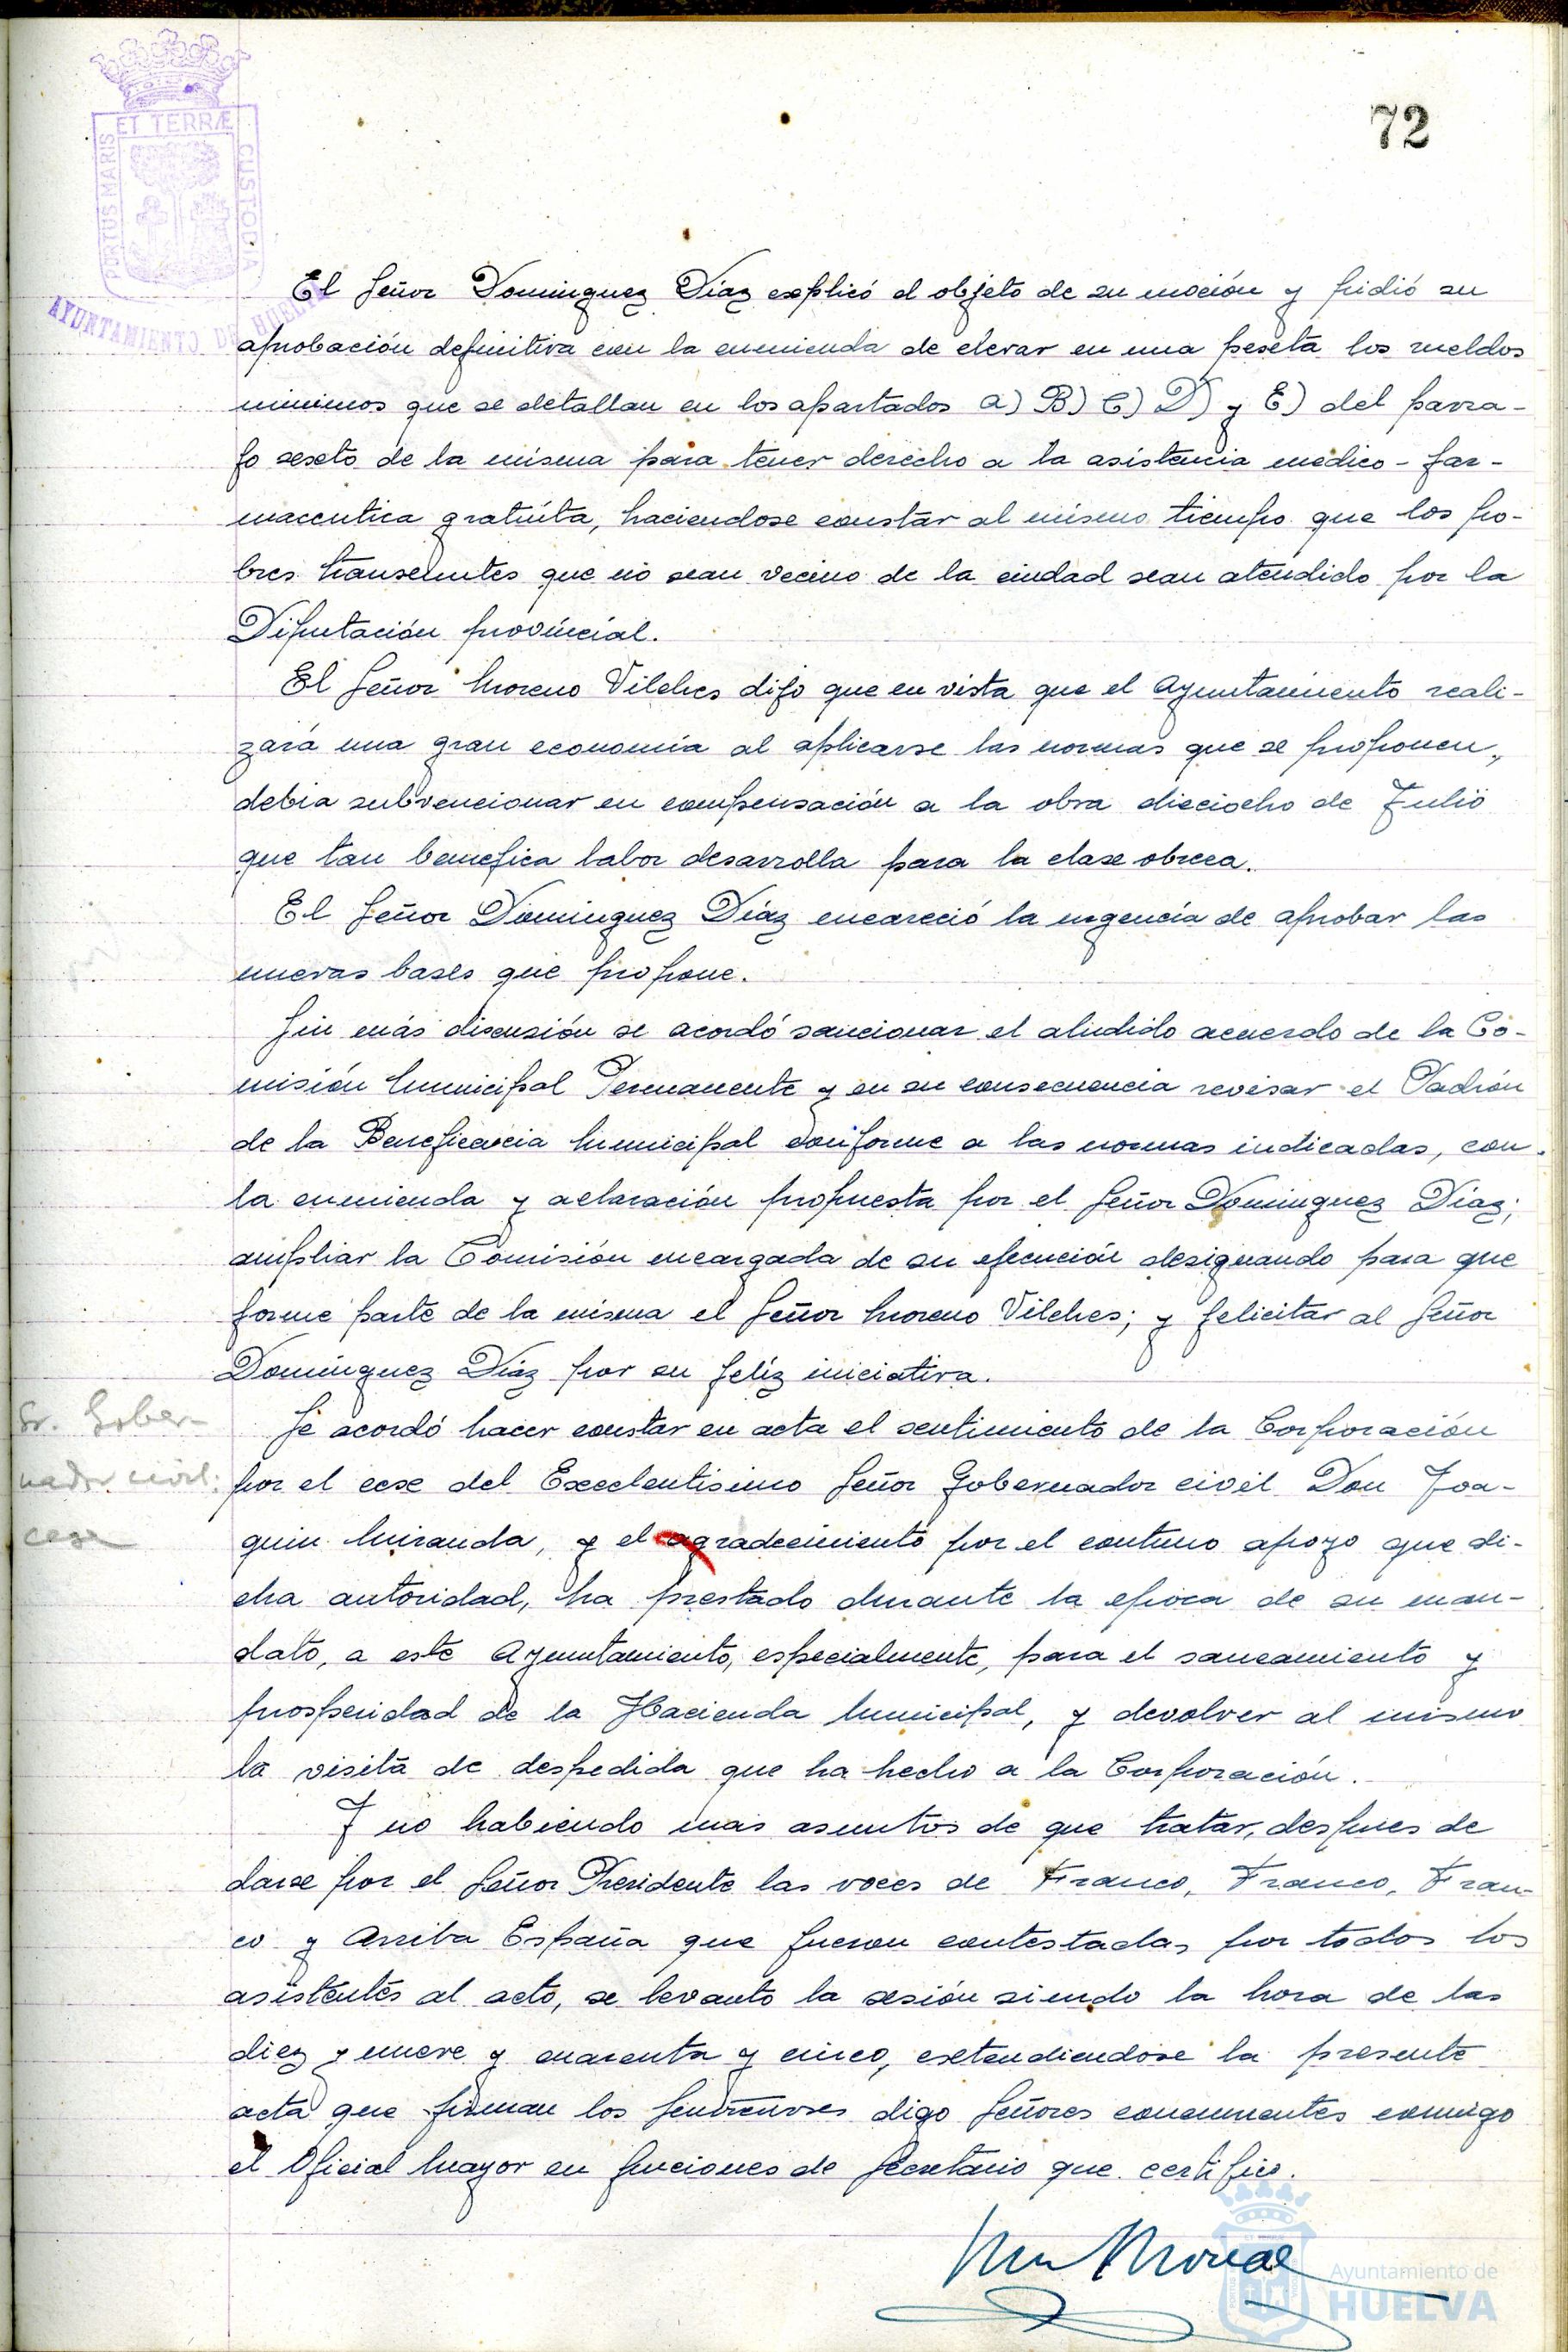 72
ET TERRÆ
PORTUS MARIS
CUSTODIA
AYUNTAMIENTO DE HUELVA
El Señor Dominguez Díaz explicó el objeto de su moción y pidió su
aprobación definitiva con la enmienda de elevar en una peseta los sueldos
minimos que se detallan en los apartados A) B) C) D) y E) del parra-
fo sexto de la misma para tener derecho a la asistencia medico-far-
maceutica gratuíta, haciendose constar al mismo tiempo que los po-
bres transeuntes que no sean vecino de la ciudad sean atendido por la
Diputación provincial.
El Señor Moreno Vilches dijo que en vista que el Ayuntamiento reali-
zará una gran economía al aplicarse las normas que se proponen,
debia subvencionar en compensación a la obra dieciocho de Julio
que tan benefica labor desarrolla para la clase obrera.
El Señor Dominguez Díaz encareció la urgencia de aprobar las
nuevas bases que propone.
Sin más discusión se acordó sancionar el aludido acuerdo de la Co-
misión Municipal Permanente y en su consecuencia revisar el Padrón
de la Beneficencia Municipal conforme a las normas indicadas, con
la enmienda y aclaración propuesta por el Señor Dominguez Díaz;
ampliar la Comisión encargada de su ejecución designando para que
forme parte de la misma el Señor Moreno Vilches; y felicitar al Señor
Domínguez Díaz por su felíz iniciativa.
Sr. Gober-
nador civil:
cese
Se acordó hacer constar en acta el sentimiento de la Corporación
por el cese del Excelentisimo Señor Gobernador civil Don Joa-
quin Miranda, y el agradecimiento por el contino apoyo que di-
cha autoridad, ha prestado durante la epoca de su man-
dato, a este Ayuntamiento, especialmente, para el saneamiento y
prosperidad de la Hacienda Municipal, y devolver al mismo
la visita de despedida que ha hecho a la Corporación.
Y no habiendo mas asuntos de que tratar, despues de
darse por el Señor Presidente las voces de Franco, Franco, Fran-
co y Arriba España que fueron contestadas por todos los
asistentes al acto, se levanto la sesión siendo la hora de las
diez y nueve y cuarenta y cinco, extendiendose la presente
acta que firman los digo Señores concurrentes conmigo
el Oficial Mayor en funciones de Secretario que certifico.
Ayuntamiento de
HUELVA